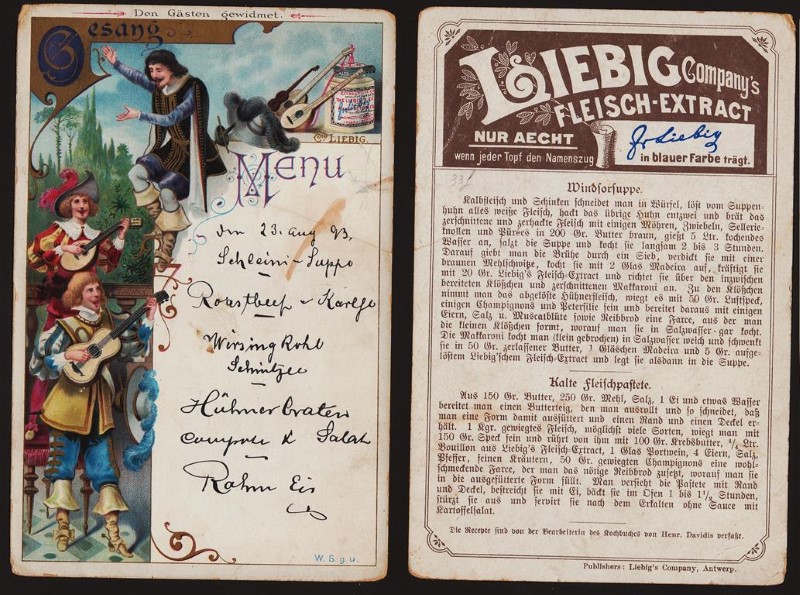 Den Gästen gewidmet.
Gesang
Cie LIEBIG.
Menu
den 23. aug 93.
Schleim-Suppe
Roastbeef - Kartfl
Wirsing Kohl
Schnitzel
Hühnerbraten
Compote & Salat
Rahm Eis
W. S. g. u.
LIEBIG Company's
FLEISCH-EXTRACT
NUR AECHT
wenn jeder Topf den Namenszug
JvLiebig
in blauer Farbe trägt.
Windsorsuppe.
Kalbfleisch und Schinken schneidet man in Würfel, löst vom Suppen-
huhn alles weiße Fleisch, hackt das übrige Huhn entzwei und brät das
zerschnittene und zerhackte Fleisch mit einigen Möhren, Zwiebeln, Sellerie-
knollen und Pürées in 200 Gr. Butter braun, gießt 5 Ltr. kochendes
Wasser an, salzt die Suppe und kocht sie langsam 2 bis 3 Stunden.
Darauf giebt man die Brühe durch ein Sieb, verdickt sie mit einer
braunen Mehlschwitze, kocht sie mit 2 Glas Madeira auf, kräftigt sie
mit 20 Gr. Liebig's Fleisch-Extract und richtet sie über den inzwischen
bereiteten Klößchen und zerschnittenen Makkaroni an. Zu den Klößchen
nimmt man das abgelöste Hühnerfleisch, wiegt es mit 50 Gr. Luftspeck,
einigen Champignons und Petersilie fein und bereitet daraus mit einigen
Eiern, Salz u. Muscatblüte sowie Reibbrod eine Farce, aus der man
die kleinen Klößchen formt, worauf man sie in Salzwasser gar kocht.
Die Makkaroni kocht man (klein gebrochen) in Salzwasser weich und schwenkt
sie in 50 Gr. zerlassener Butter, 1 Gläschen Madeira und 5 Gr. aufge-
löstem Liebig'schem Fleisch-Extract und legt sie alsdann in die Suppe.
Kalte Fleischpastete.
Aus 150 Gr. Butter, 250 Gr. Mehl, Salz, 1 Ei und etwas Wasser
bereitet man einen Butterteig, den man ausrollt und so schneidet, daß
man eine Form damit ausfüttert und einen Rand und einen Deckel er-
hält. 1 Kgr. gewiegtes Fleisch, möglichst viele Sorten, wiegt man mit
150 Gr. Speck fein und rührt von ihm mit 100 Gr. Krebsbutter, ¼ Ltr.
Bouillon aus Liebig's Fleisch-Extract, 1 Glas Portwein, 4 Eiern, Salz,
Pfeffer, feinen Kräutern, 50 Gr. gewiegten Champignons eine wohl-
schmeckende Farce, der man das nötige Reibbrod zusetzt, worauf man sie
in die ausgefütterte Form füllt. Man versieht die Pastete mit Rand
und Deckel, bestreicht sie mit Ei, bäckt sie im Ofen 1 bis 1½ Stunden,
stürzt sie aus und serviert sie nach dem Erkalten ohne Sauce mit
Kartoffelsalat.
Die Recepte sind von der Bearbeiterin des Kochbuches von Henr. Davidis verfaßt.
Publishers: Liebig's Company, Antwerp.